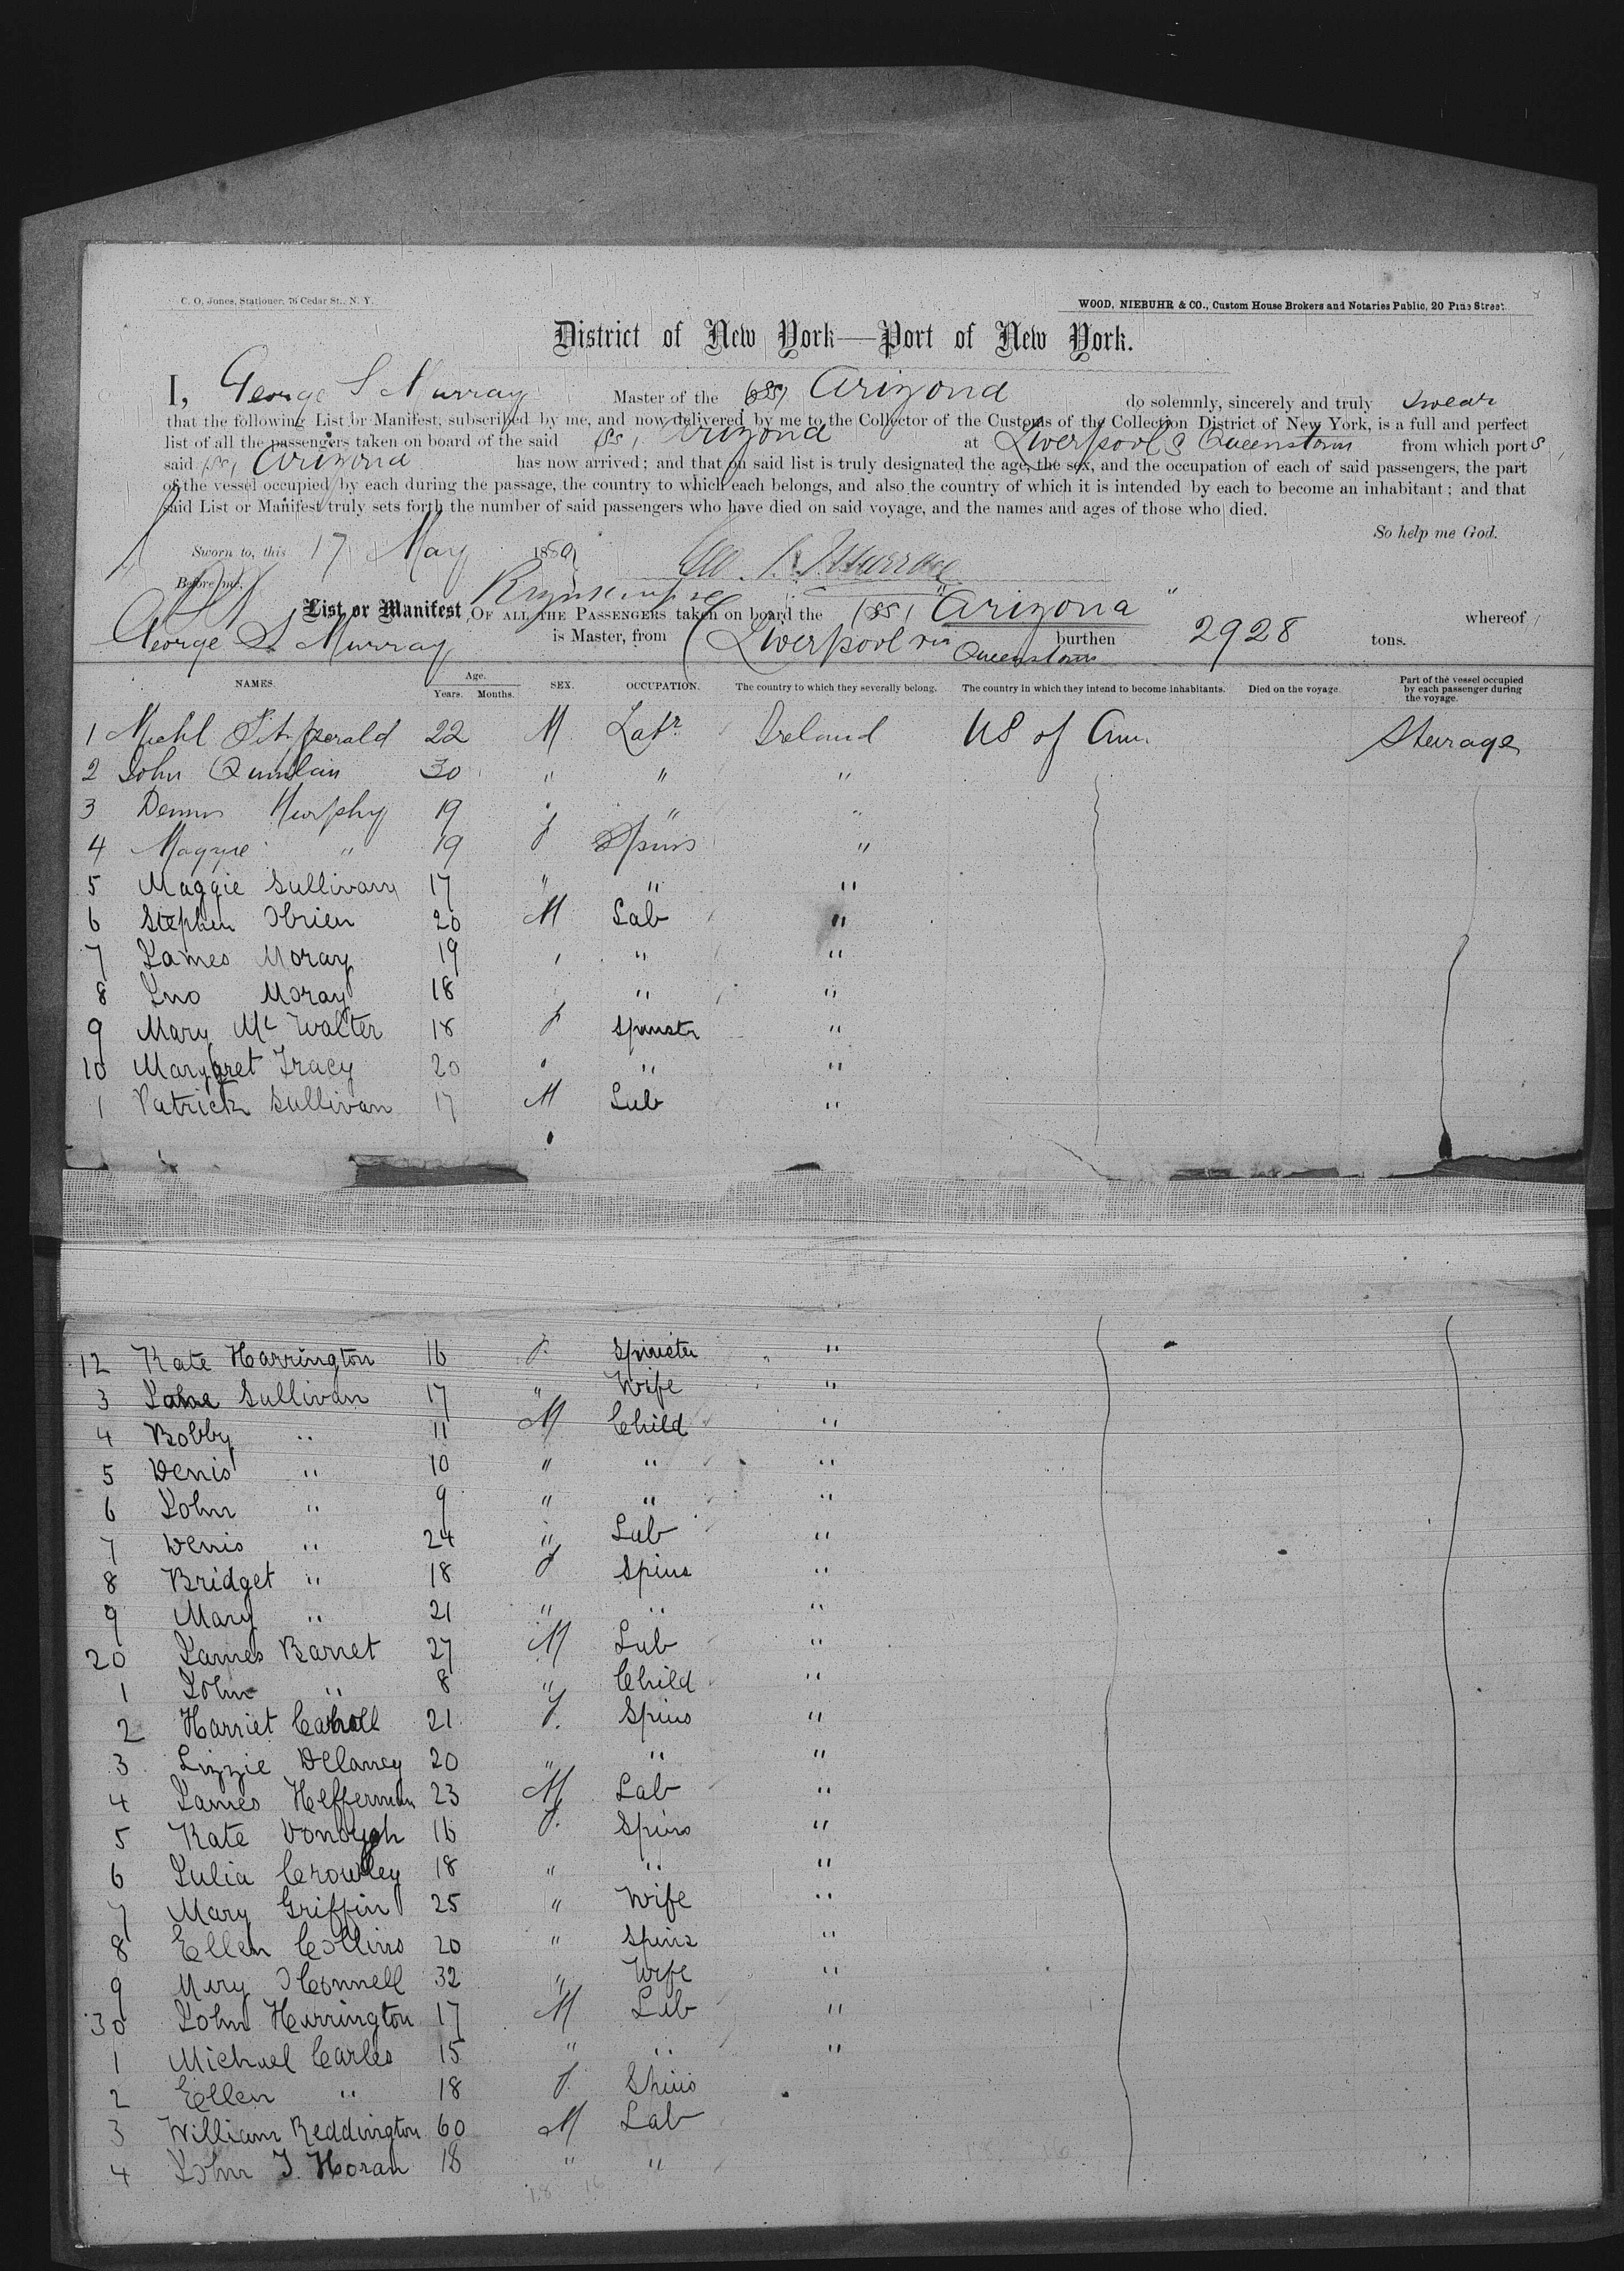 C. O. Jones, Stationer, 76 Cedar St., N. Y.
WOOD, NIEBUHR & CO., Custom House Brokers and Notaries Public, 20 Pine Street.
District of New York—Port of New York.
I, George S Murray Master of the (SS) Arizona do solemnly, sincerely and truly swear
that the following List or Manifest, subscribed by me, and now delivered by me to the Collector of the Customs of the Collection District of New York, is a full and perfect
list of all the passengers taken on board of the said (SS) Arizona at Liverpool & Queenstown from which ports
said (SS) Arizona has now arrived; and that on said list is truly designated the age, the sex, and the occupation of each of said passengers, the part
of the vessel occupied by each during the passage, the country to which each belongs, and also the country of which it is intended by each to become an inhabitant; and that
said List or Manifest truly sets forth the number of said passengers who have died on said voyage, and the names and ages of those who died.
So help me God.
Sworn to, this 17 May 1889
Geo. S. Murray
Before me,
List or Manifest OF ALL THE PASSENGERS taken on board the (SS) "Arizona" whereof
George S. Murray is Master, from Liverpool via Queenstown burthen 2928 tons.
NAMES. Age. Years. Months. SEX. OCCUPATION. The country to which they severally belong. The country in which they intend to become inhabitants. Died on the voyage. Part of the vessel occupied by each passenger during the voyage.
1 Michl Fitzgerald 22 M Labr Ireland US of Am. Steerage
2 John Quinlan 30 " " "
3 Dennis Murphy 19 " " "
4 Maggie " 19 f Spins "
5 Maggie Sullivan 17 " " "
6 Stephen Obrien 20 M Lab "
7 James Moray 19 " " "
8 Jno Moray 18 " "
9 Mary Mc Walter 18 f Spinstr "
10 Margaret Tracy 20 " " "
1 Patrick Sullivan 17 M Lab "
12 Kate Harrington 16 f. Spinster "
3 Sullivan 17 " Wife "
4 Bobby " 11 M Child "
5 Denis " 10 " " "
6 John " 9 " " "
7 Denis " 24 " Lab "
8 Bridget " 18 f Spins "
9 Mary " 21 " " "
20 James Barret 27 M Lab "
1 John " 8 " Child "
2 Harriet Carroll 21 f. Spins "
3 Lizzie Delaney 20 " " "
4 James Heffernan 23 M Lab "
5 Kate Donogh 16 f. Spins "
6 Julia Crowley 18 " " "
7 Mary Griffin 25 " Wife "
8 Ellen Collins 20 " Spins "
9 Mary OConnell 32 " Wife "
30 John Harrington 17 M Lab "
1 Michael Carles 15 " " "
2 Ellen " 18 f. Spins
3 William Reddington 60 M Lab
4 John J. Horan 18 " "